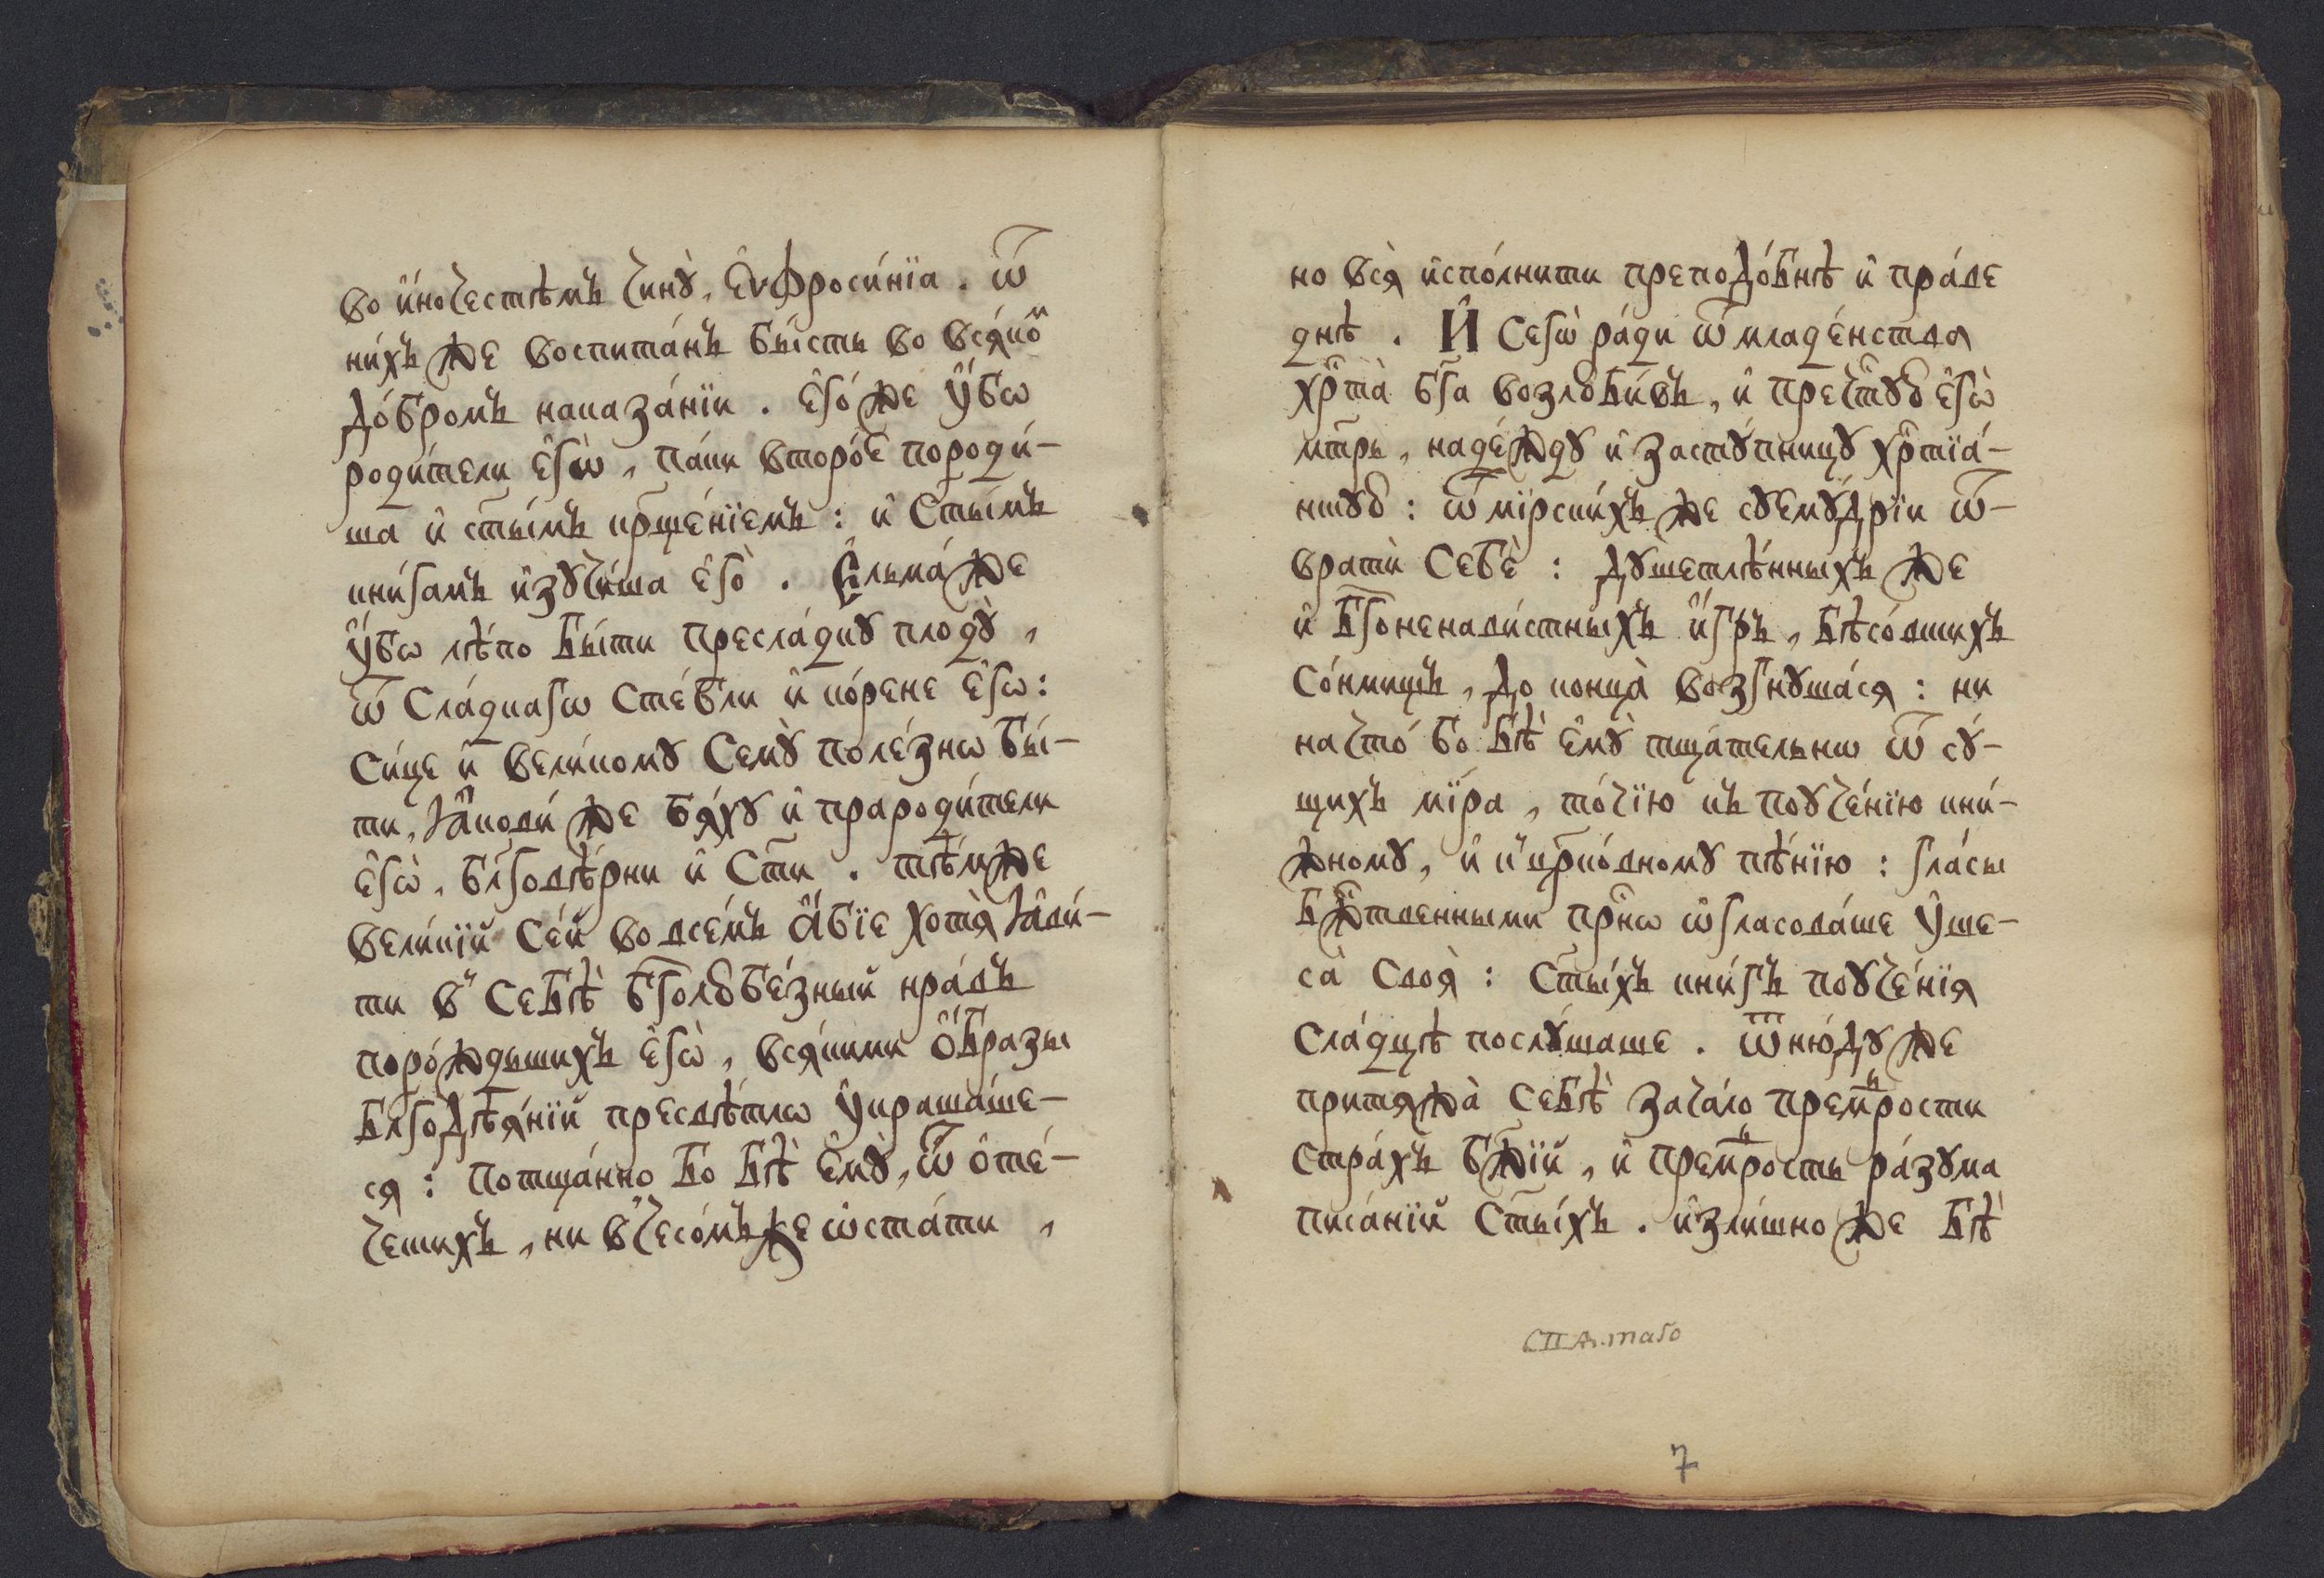 во и҆но́чествѣмъ чинꙋ̀, Е҆ѵфроси́нїа . Ѿ
ни́хъ же воспита́нъ бы́сть во вся́ко̾
до́бромъ наказа́нїи . є҆го́ же ᲂу҆́бѡ
роди́тели є҆гѡ̀ , па́ки второ́е породи́-
ша и҆ ст҃ы́мъ кр҃ще́нїемъ : и҆ Ст҃ы́мъ
кни́гамъ и҆зꙋчи́ша є҆го̀ . Е҆льма́ же
ᲂу҆́бѡ лѣ́по бы́ти пресла́дкꙋ плодꙋ̀ ,
ѿ Сла́дкагѡ Сте́бли и҆ ко́рене є҆гѡ :
Си́це и҆ вели́комꙋ Семꙋ̀ поле́знѡ бы́-
ти , Ꙗ҆кови́ же бя́хꙋ и҆ прароди́тели
є҆гѡ̀ , бл҃говѣ́рни и҆ Ст҃и . тѣ́мже
вели́кїй Се́й во все́мъ а҆́бїе хотя̀ ꙗ҆ви́-
ти в̾ Себѣ̀ бг҃олюбе́зный нра́въ
поро́ждьшихъ є҆гѡ̀ , вся́кими о҆́бразы
бл҃годѣя́нїй пресвѣ́тлѡ ᲂу҆краша́ше-
ся : Потща́нно бо бѣ̀ є҆мꙋ̀ , ѿ о҆те́-
чешихъ , ни в̾чесо́мъже ѡ҆ста́ти ,
но вся̀ и҆спо́лнити преподо́бнѣ и҆ пра́ве
днѣ . И҆ Сегѡ̀ ра́ди ѿ младе́нства
хр҃та̀ бг҃а возлюби́въ , и҆ Пречⷭ҇тꙋю є҆гѡ̀
мт҃рь , наде́ждꙋ и҆ застꙋ́пницꙋ хр҃тїа́-
нскꙋю : ѿ мїрски́хъ же сꙋемꙋ́дрїи ѿ-
вратѝ Себѐ : дꙋшетлѣ́нныхъ же
и҆ бг҃оненави́стныхъ и҆́гръ , бѣсо́вшихъ
Со́нмищъ , до конца̀ возгнꙋша́ся : ни
начто́ бо бѣ̀ є҆мꙋ̀ тща́тельнѡ ѿ сꙋ́-
щихъ мі́ра , то́чїю къ поꙋче́нїю кни́-
жномꙋ , и҆ к̾ цр҃ко́вномꙋ пѣ́нїю : гла́сы
бж҃твенными пр҃нѡ ѡ҆гласова́ше ᲂу҆ше-
са̀ Своя̀ : Ст҃ы́хъ кни́гъ поꙋче́нїя
Сла́дцѣ послꙋ́шаше . Ѿню́дꙋ же
притяжа̀ Себѣ̀ зача́ло премⷣрости
Стра́хъ бж҃їй , и҆ премⷣрость ра́зꙋма
писа́нїй Ст҃ы́хъ . и҆зли́шно же бѣ̀
7